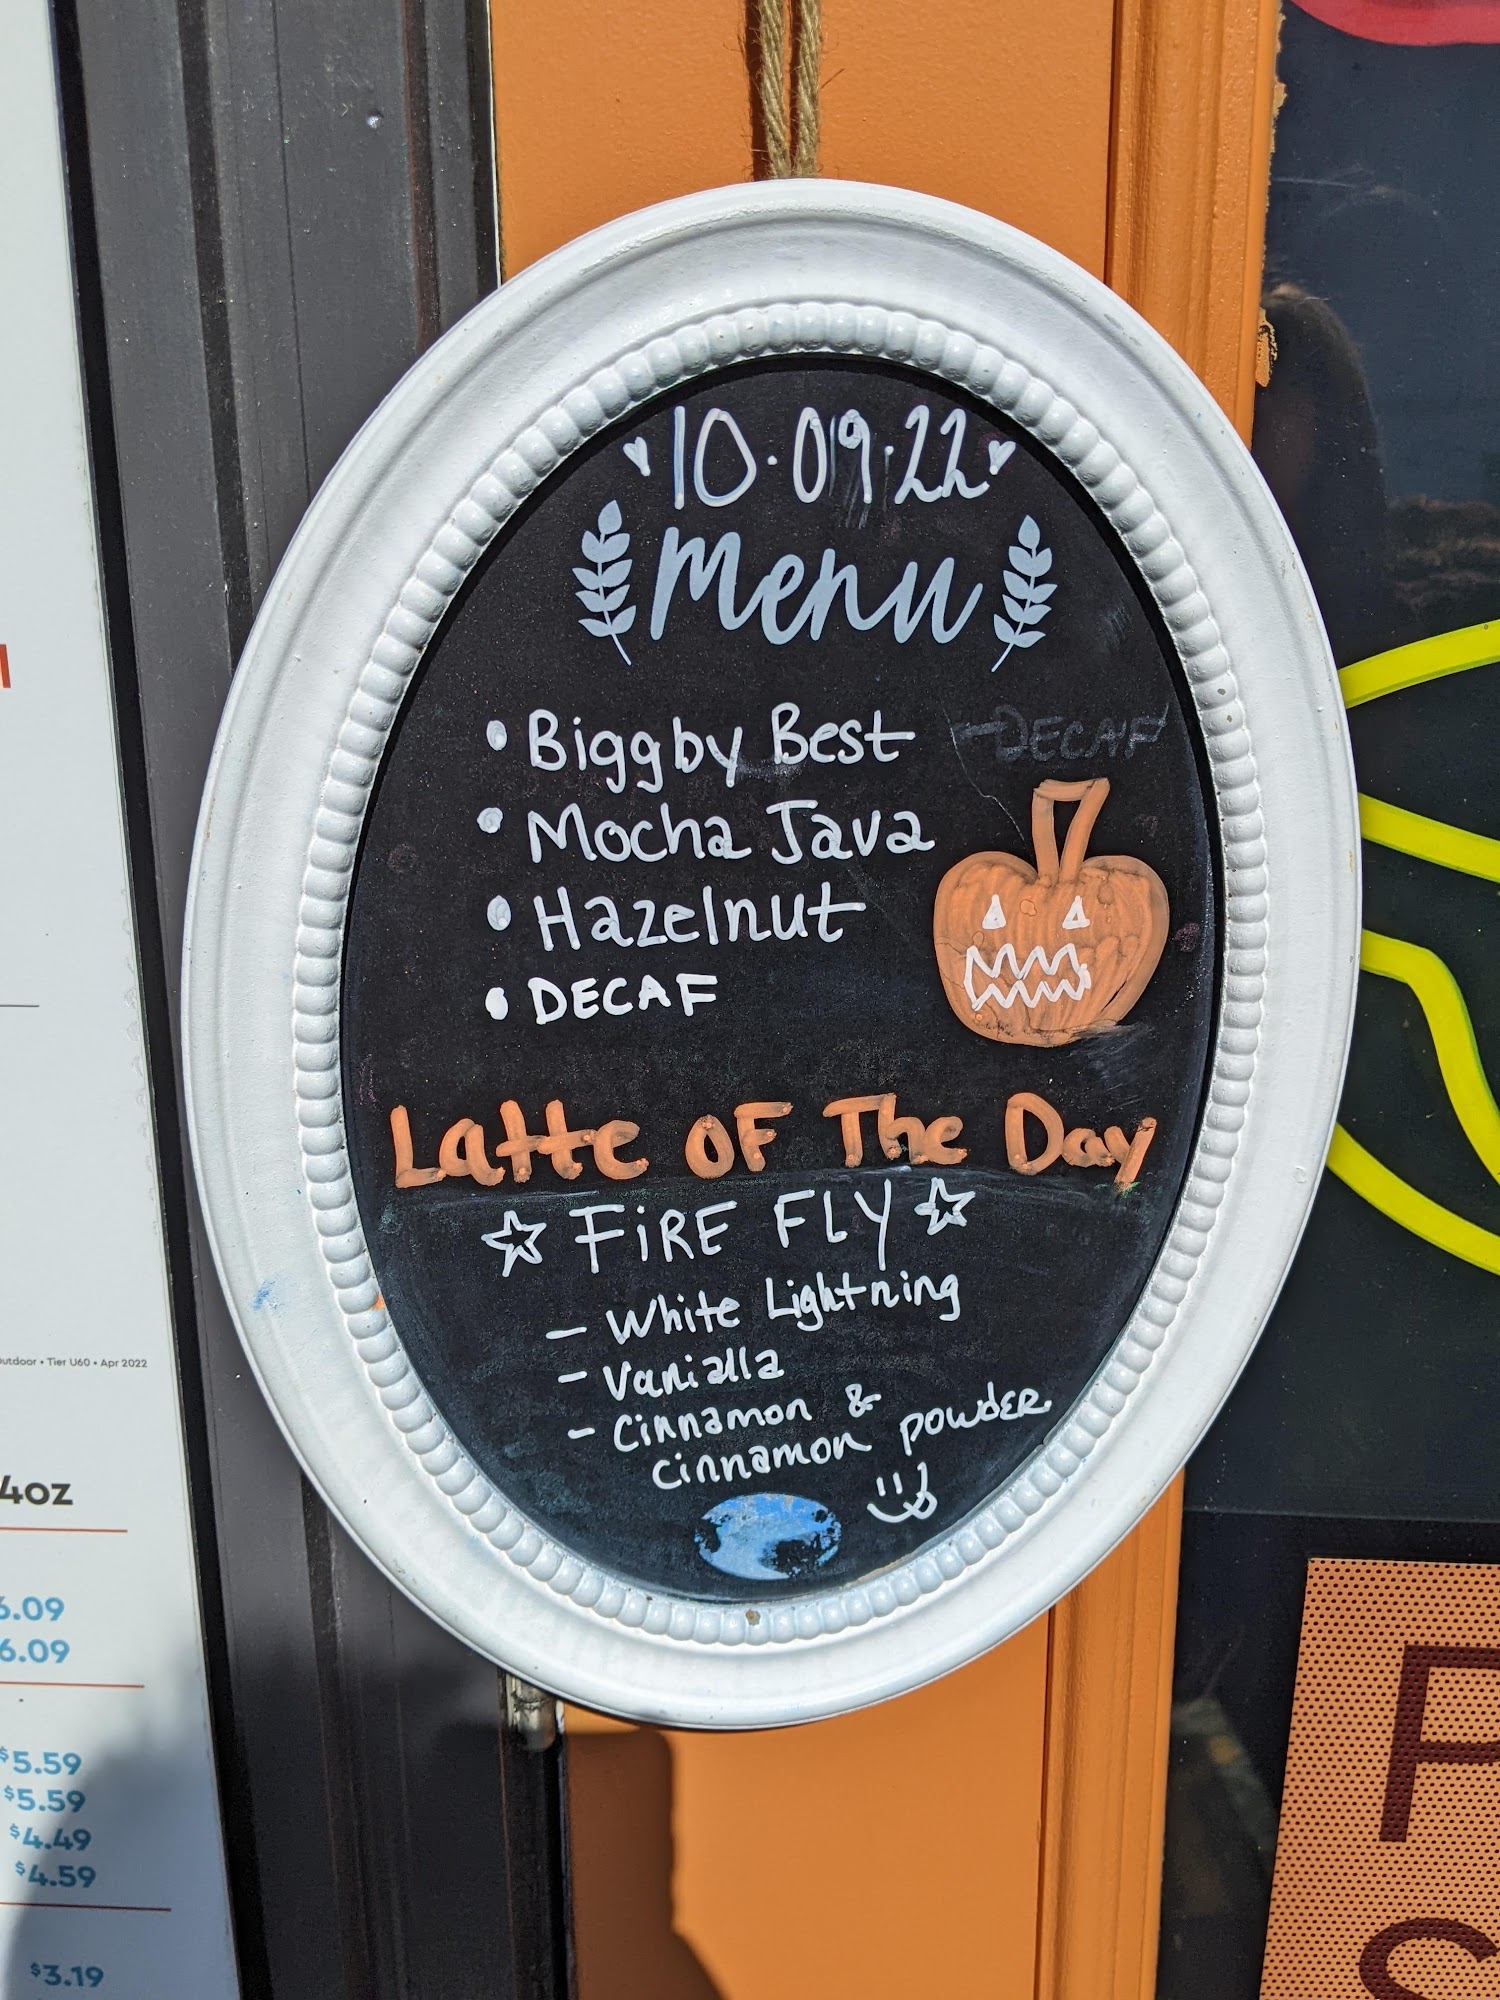 10.09.22
Menu
• Biggby Best
- DECAF
• Mocha Java
• Hazelnut
• DECAF
Latte OF The Day
☆ FiRE FLY ☆
- White Lightning
- Vanialla
- Cinnamon &
cinnamon powder
utdoor • Tier U60 • Apr 2022
4oz
6.09
6.09
$5.59
$5.59
$4.49
$4.59
$3.19
P
S